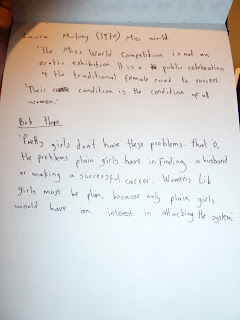 Laura Mulvey (1970) Miss world.
'The Miss World Competition is not an
erotic exhibition. It is a public celebration
of the traditional female road to success.
'Their condition is the condition of all
women.'
Bob Hope
'Pretty girls don't have these problems. that is,
the problems plain girls have in finding a husband
or making a successful career. Womens Lib
girls must be plain, because only plain girls
would have an interest in attacking the system.'